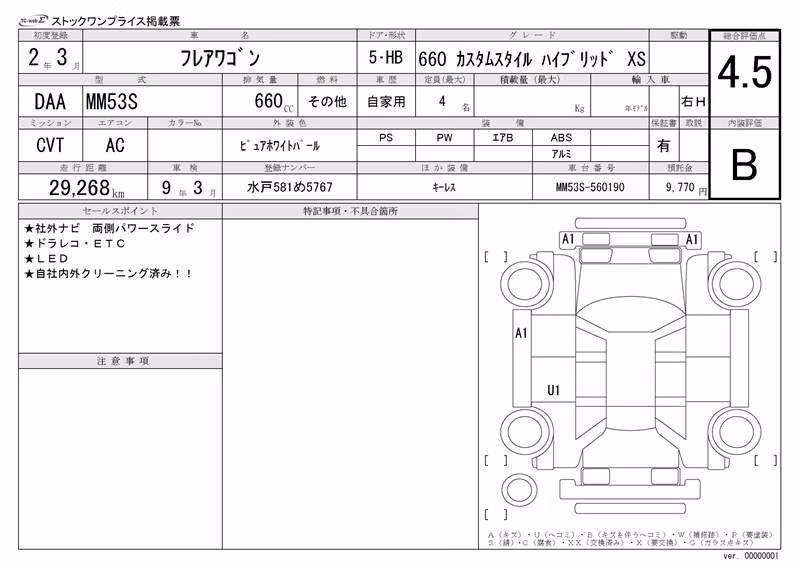 TC-webΣ ストックワンプライス掲載票
初度登録 車名 ドア・形状 グレード 駆動 総合評価点
2年3月 フレアワゴン 5・HB 660 カスタムスタイル ハイブリッド XS 4.5
型式 排気量 燃料 車歴 定員(最大) 積載量(最大) 輸入車
DAA MM53S 660CC その他 自家用 4名 Kg 年モデル 右H
ミッション エアコン カラーNo. 外装色 装備 保証書 取説 内装評価
CVT AC ピュアホワイトパール PS PW エアB ABS 有 B
アルミ
走行距離 車検 登録ナンバー ほか装備 車台番号 預託金
29,268km 9年3月 水戸581め5767 キーレス MM53S-560190 9,770円
セールスポイント 特記事項・不具合箇所
★社外ナビ 両側パワースライド
★ドラレコ・ETC
★LED
★自社内外クリーニング済み!!
注意事項
A1 A1
[ ] [ ]
A1
U1
[ ] [ ]
[ ]
A(キズ)・U(ヘコミ)・B(キズを伴うヘコミ)・W(補修跡)・P(要塗装)
S(錆)・C(腐食)・XX(交換済み)・X(要交換)・G(ガラス点キズ)
ver. 00000001